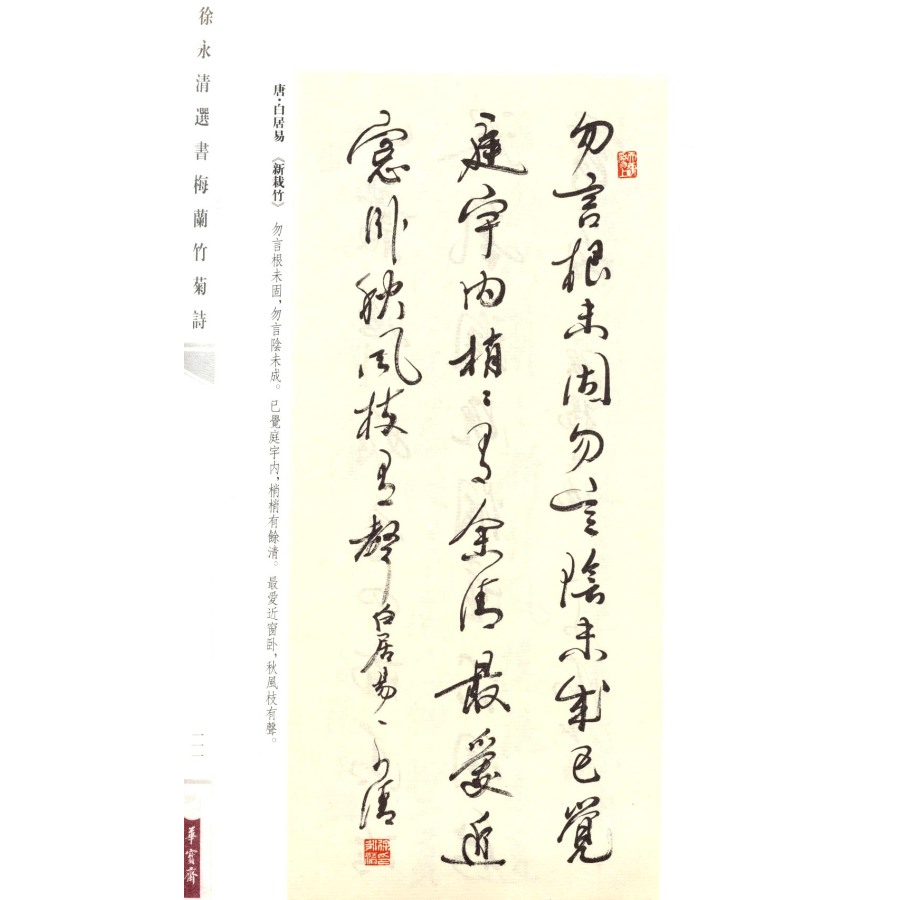 勿言根未固勿言陰未成已覺
庭宇内梢〻有余清最愛近
窓卧秋風枝有聲白居易永清
唐·白居易 《新栽竹》 勿言根未固，勿言陰未成。已覺庭宇内，梢梢有餘清。最愛近窗卧，秋風枝有聲。
徐永清選書梅蘭竹菊詩
二一
華寶齋